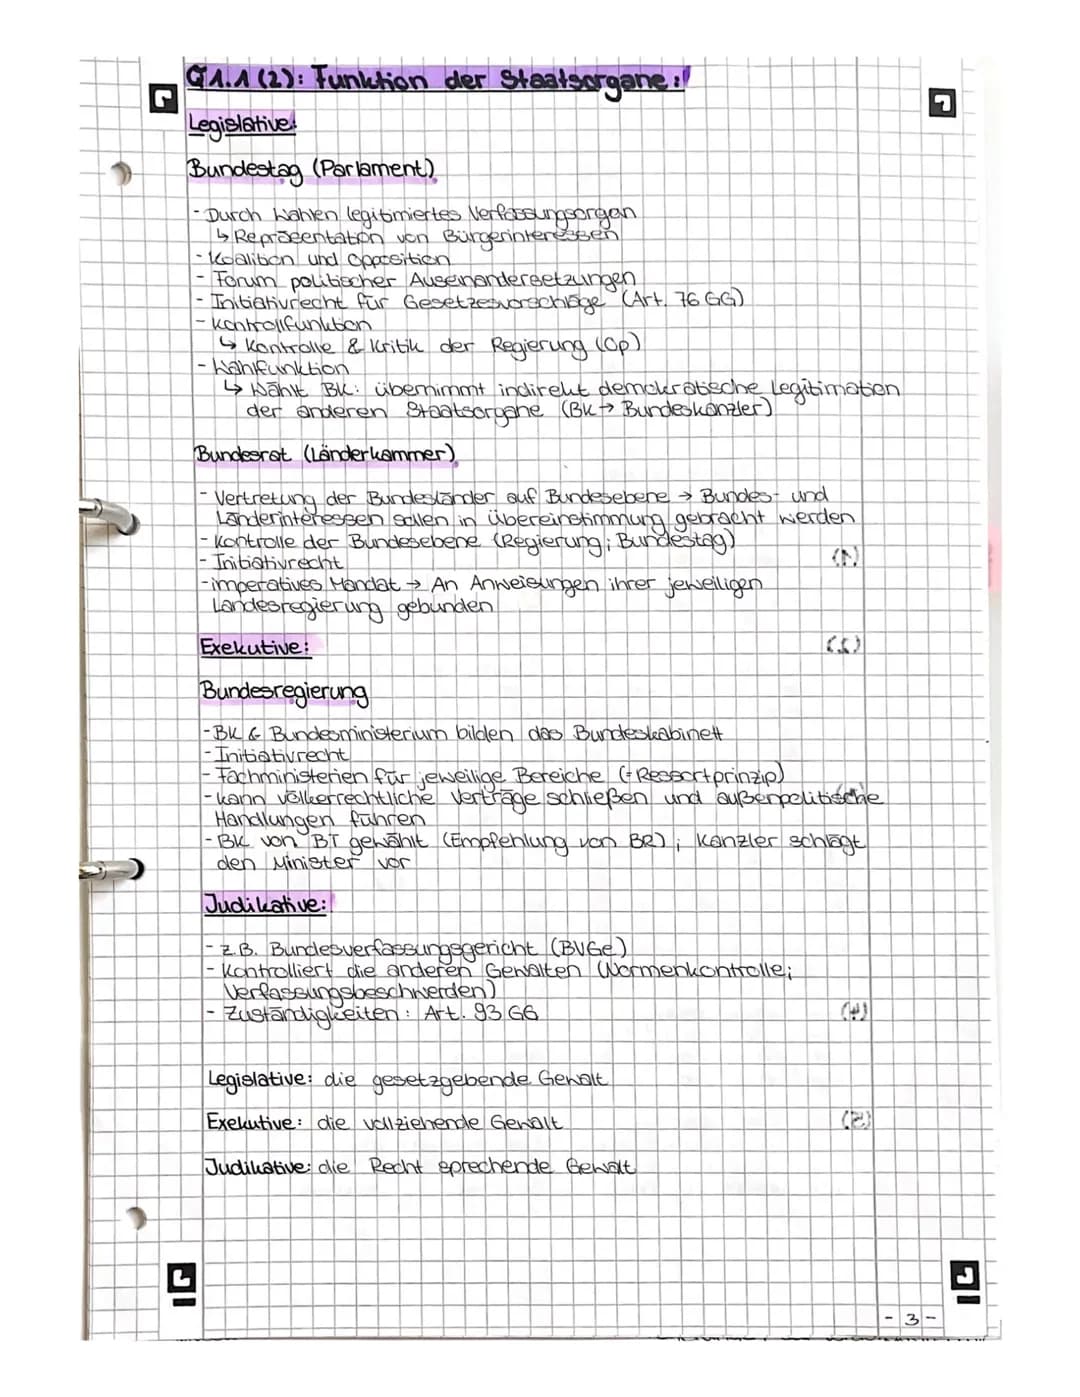 Q1.1 (2): Funktion der Staatsorgane:
Legislative:
Bundestag (Parlament)
- Durch Wahlen legitimiertes Verfassungsorgan
↳ Repräsentation von Bürgerinteressen
- Koalition und Opposition
- Forum politischer Auseinandersetzungen
- Initiativrecht für Gesetzesvorschläge (Art. 76 GG)
- Kontrollfunktion
↳ Kontrolle & Kritik der Regierung (Op)
- Wahlfunktion
↳ Wählt BK: übernimmt indirekt demokratische Legitimation
der anderen Staatsorgane (BK → Bundeskanzler)
Bundesrat (Länderkammer)
- Vertretung der Bundesländer auf Bundesebene → Bundes- und
Länderinteressen sollen in übereinstimmung gebracht werden
- Kontrolle der Bundesebene (Regierung; Bundestag)
- Initiativrecht
- imperatives Mandat → An Anweisungen ihrer jeweiligen
Landesregierung gebunden
Exekutive:
Bundesregierung
- BK & Bundesministerium bilden das Bundeskabinett
- Initiativrecht
- Fachministerien für jeweilige Bereiche (= Ressortprinzip)
- kann völkerrechtliche Verträge schließen und außenpolitische
Handlungen führen
- BK von BT gewählt (Empfehlung von BR); Kanzler schlägt
den Minister vor
Judikative:
- z.B. Bundesverfassungsgericht (BVGe)
- Kontrolliert die anderen Gewalten (Normenkontrolle;
Verfassungsbeschwerden)
- Zuständigkeiten: Art. 93 GG
Legislative: die gesetzgebende Gewalt
Exekutive: die vollziehende Gewalt
Judikative: die Recht sprechende Gewalt
- 3 -